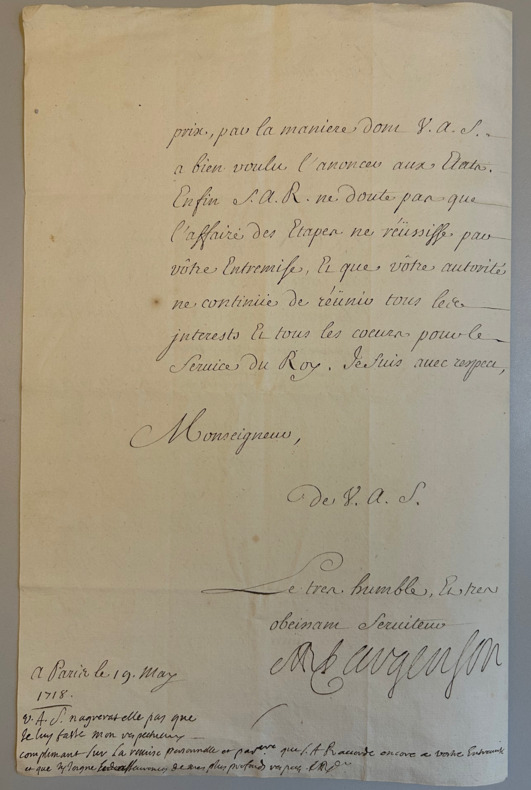 prix, par la maniere dont V. A. S.
a bien voulu l'anoncer aux Etats.
Enfin S. A. R. ne doute pas que
l'affaire des Etapes ne réüssisse par
vôtre Entremise, Et que vôtre autorité
ne continüe de réünir tous les
interests Et tous les coeurs pour le
Service du Roy. Je suis avec respect,
Monseigneur,
De V. A. S.
Le tres humble, Et tres
obeissant Serviteur
a Paris le 19. May
1718.
V. A. S. n'agrera t elle pas que
Je luy fasse mon respectueux
complimant sur la remise personnelle et que S A R acorde encore a votre Entremise
et que de mes plus profonds respects